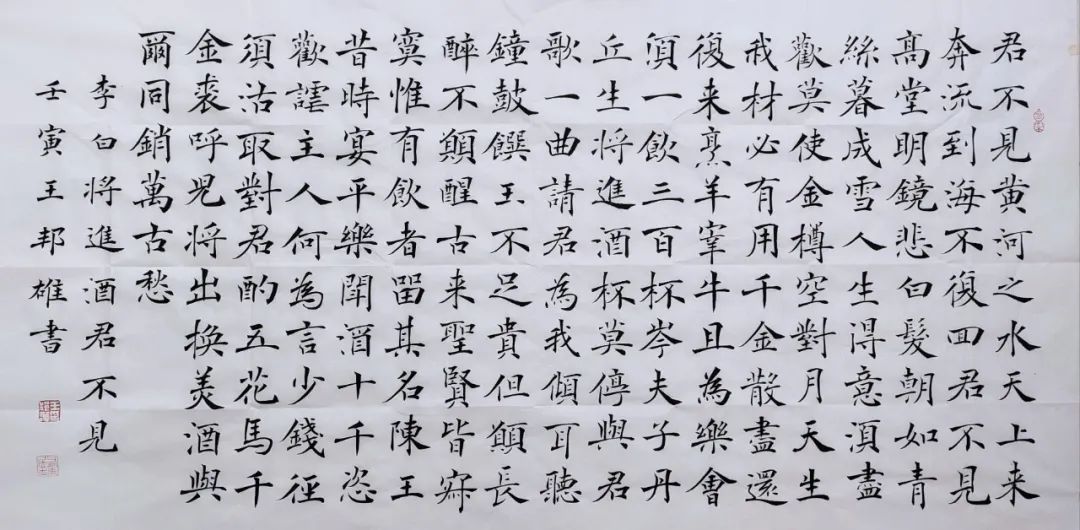 君不見黄河之水天上来
奔流到海不復回君不見
高堂明鏡悲白髮朝如青
絲暮成雪人生得意須盡
歡莫使金樽空對月天生
我材必有用千金散盡還
復来烹羊宰牛且為樂會
須一飲三百杯岑夫子丹
丘生將進酒杯莫停與君
歌一曲請君為我傾耳聽
鐘鼓饌玉不足貴但願長
醉不願醒古来聖賢皆寂
寞惟有飲者留其名陳王
昔時宴平樂聞酒十千恣
歡謔主人何為言少錢徑
須沽取對君酌五花馬千
金裘呼兒將出換美酒與
爾同銷萬古愁
李白將進酒君不見
壬寅王邦雄書